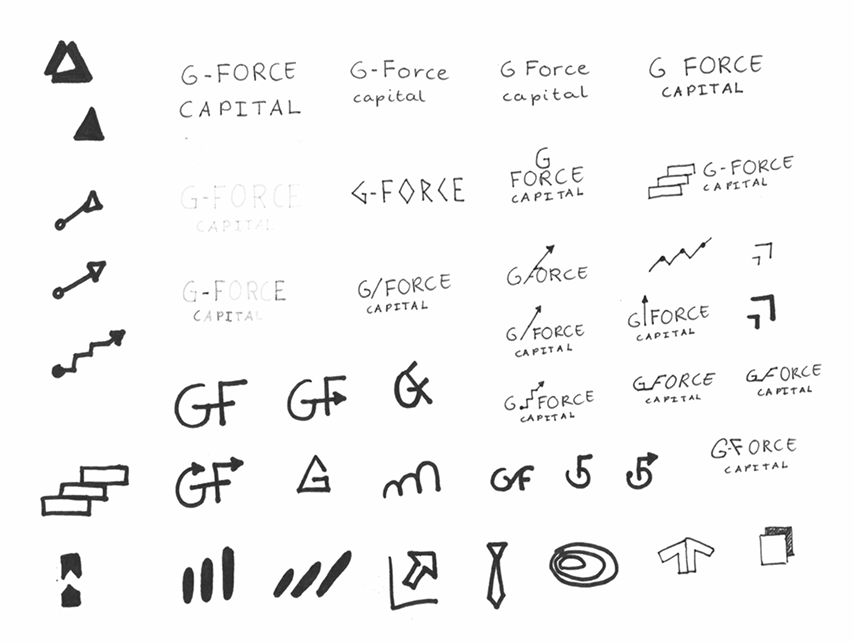 G-FORCE
CAPITAL
G-Force
capital
G Force
capital
G FORCE
CAPITAL
G-FORCE
CAPITAL
G-FORCE
G
FORCE
CAPITAL
G-FORCE
CAPITAL
G-FORCE
CAPITAL
G/FORCE
CAPITAL
G/FORCE
G/FORCE
CAPITAL
G FORCE
CAPITAL
GF
GF
G FORCE
CAPITAL
GFORCE
CAPITAL
GFORCE
CAPITAL
GF
G
GF
G-FORCE
CAPITAL